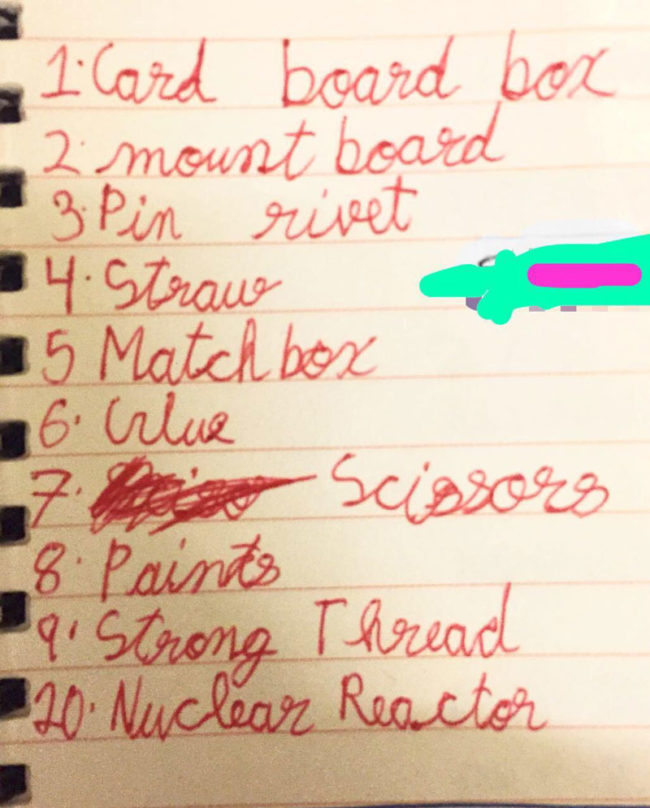 1. Card board box
2. mount board
3. Pin rivet
4. Straw
5 Match box
6. Glue
7. Scissors
8. Paints
9. Strong Thread
10. Nuclear Reactor